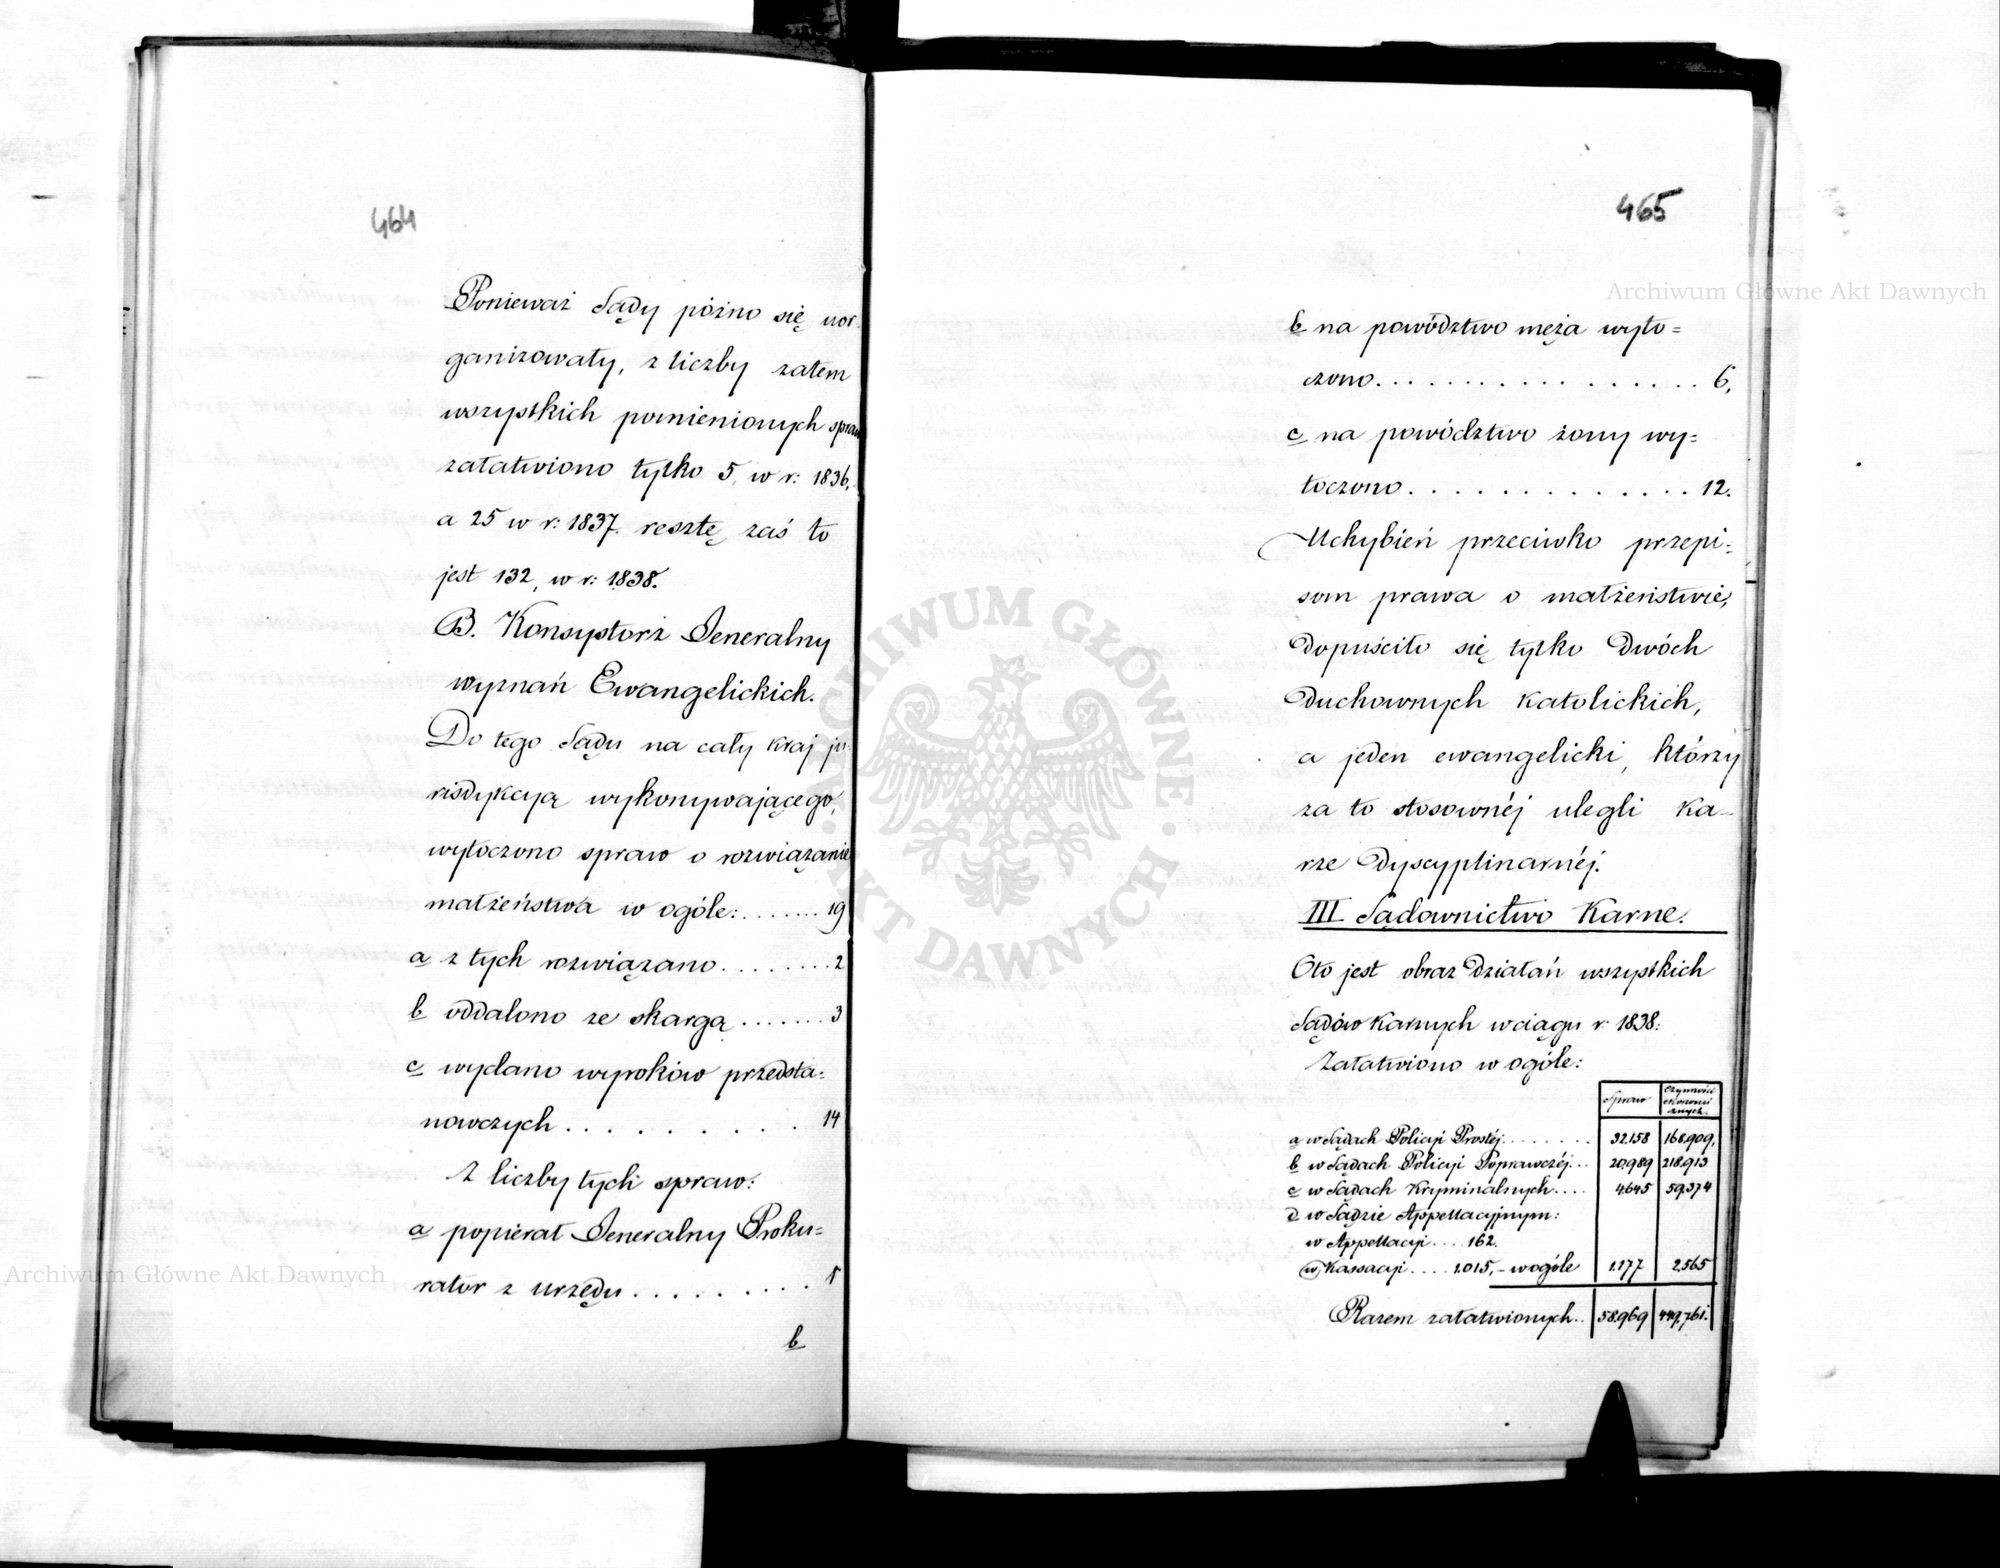 464
Ponieważ Sądy późno się uor-
ganizowały, z liczby zatem
wszystkich pomienionych spraw
załatwiono tylko 5, w r: 1836,
a 25 w r: 1837. resztę zaś to
jest 132, w r: 1838.
B. Konsystorz Jeneralny
wyznań Ewangelickich.
Do tego Sądu na cały kraj ju-
risdykcyą wykonywającego,
wytoczono spraw o rozwiązanie
małżeństwa w ogóle:....... 19
a z tych rozwiązano........ 2
b oddalono ze skargą....... 3
c wydano wyroków przedsta=
nowczych.......... 14
Z liczby tych spraw:
a popierał Jeneralny Proku=
rator z urzędu......... 1
b
465
b na powództwo męża wyto=
czono................. 6,
c na powództwo żony wy=
toczono.............. 12.
Uchybień przeciwko przepi=
som prawa o małżeństwie,
dopuściło się tylko dwóch
duchownych katolickich,
a jeden ewangelicki, którzy
za to stosownéj ulegli ka-
rze dyscyplinarnéj.
III. Sądownictwo Karne.
Oto jest obraz działań wszystkich
Sądów Karnych w ciągu r: 1838:
Załatwiono w ogóle:
Spraw | Czynności ekonomicznych
a w Sądach Policyi Prostéj........ 32.158 168.909,
b w Sądach Policyi Poprawczéj... 20,989 218.913
c w Sądach Kryminalnych.... 4.645 59,374
d w Sądzie Appellacyjnym:
w Appellacyi.... 162.
w Kassacyi.... 1.015,- w ogóle 1.177 2.565
Razem załatwionych.. 58.969 449,761.
Archiwum Główne Akt Dawnych
Archiwum Główne Akt Dawnych
ARCHIWUM GŁÓWNE
AKT DAWNYCH